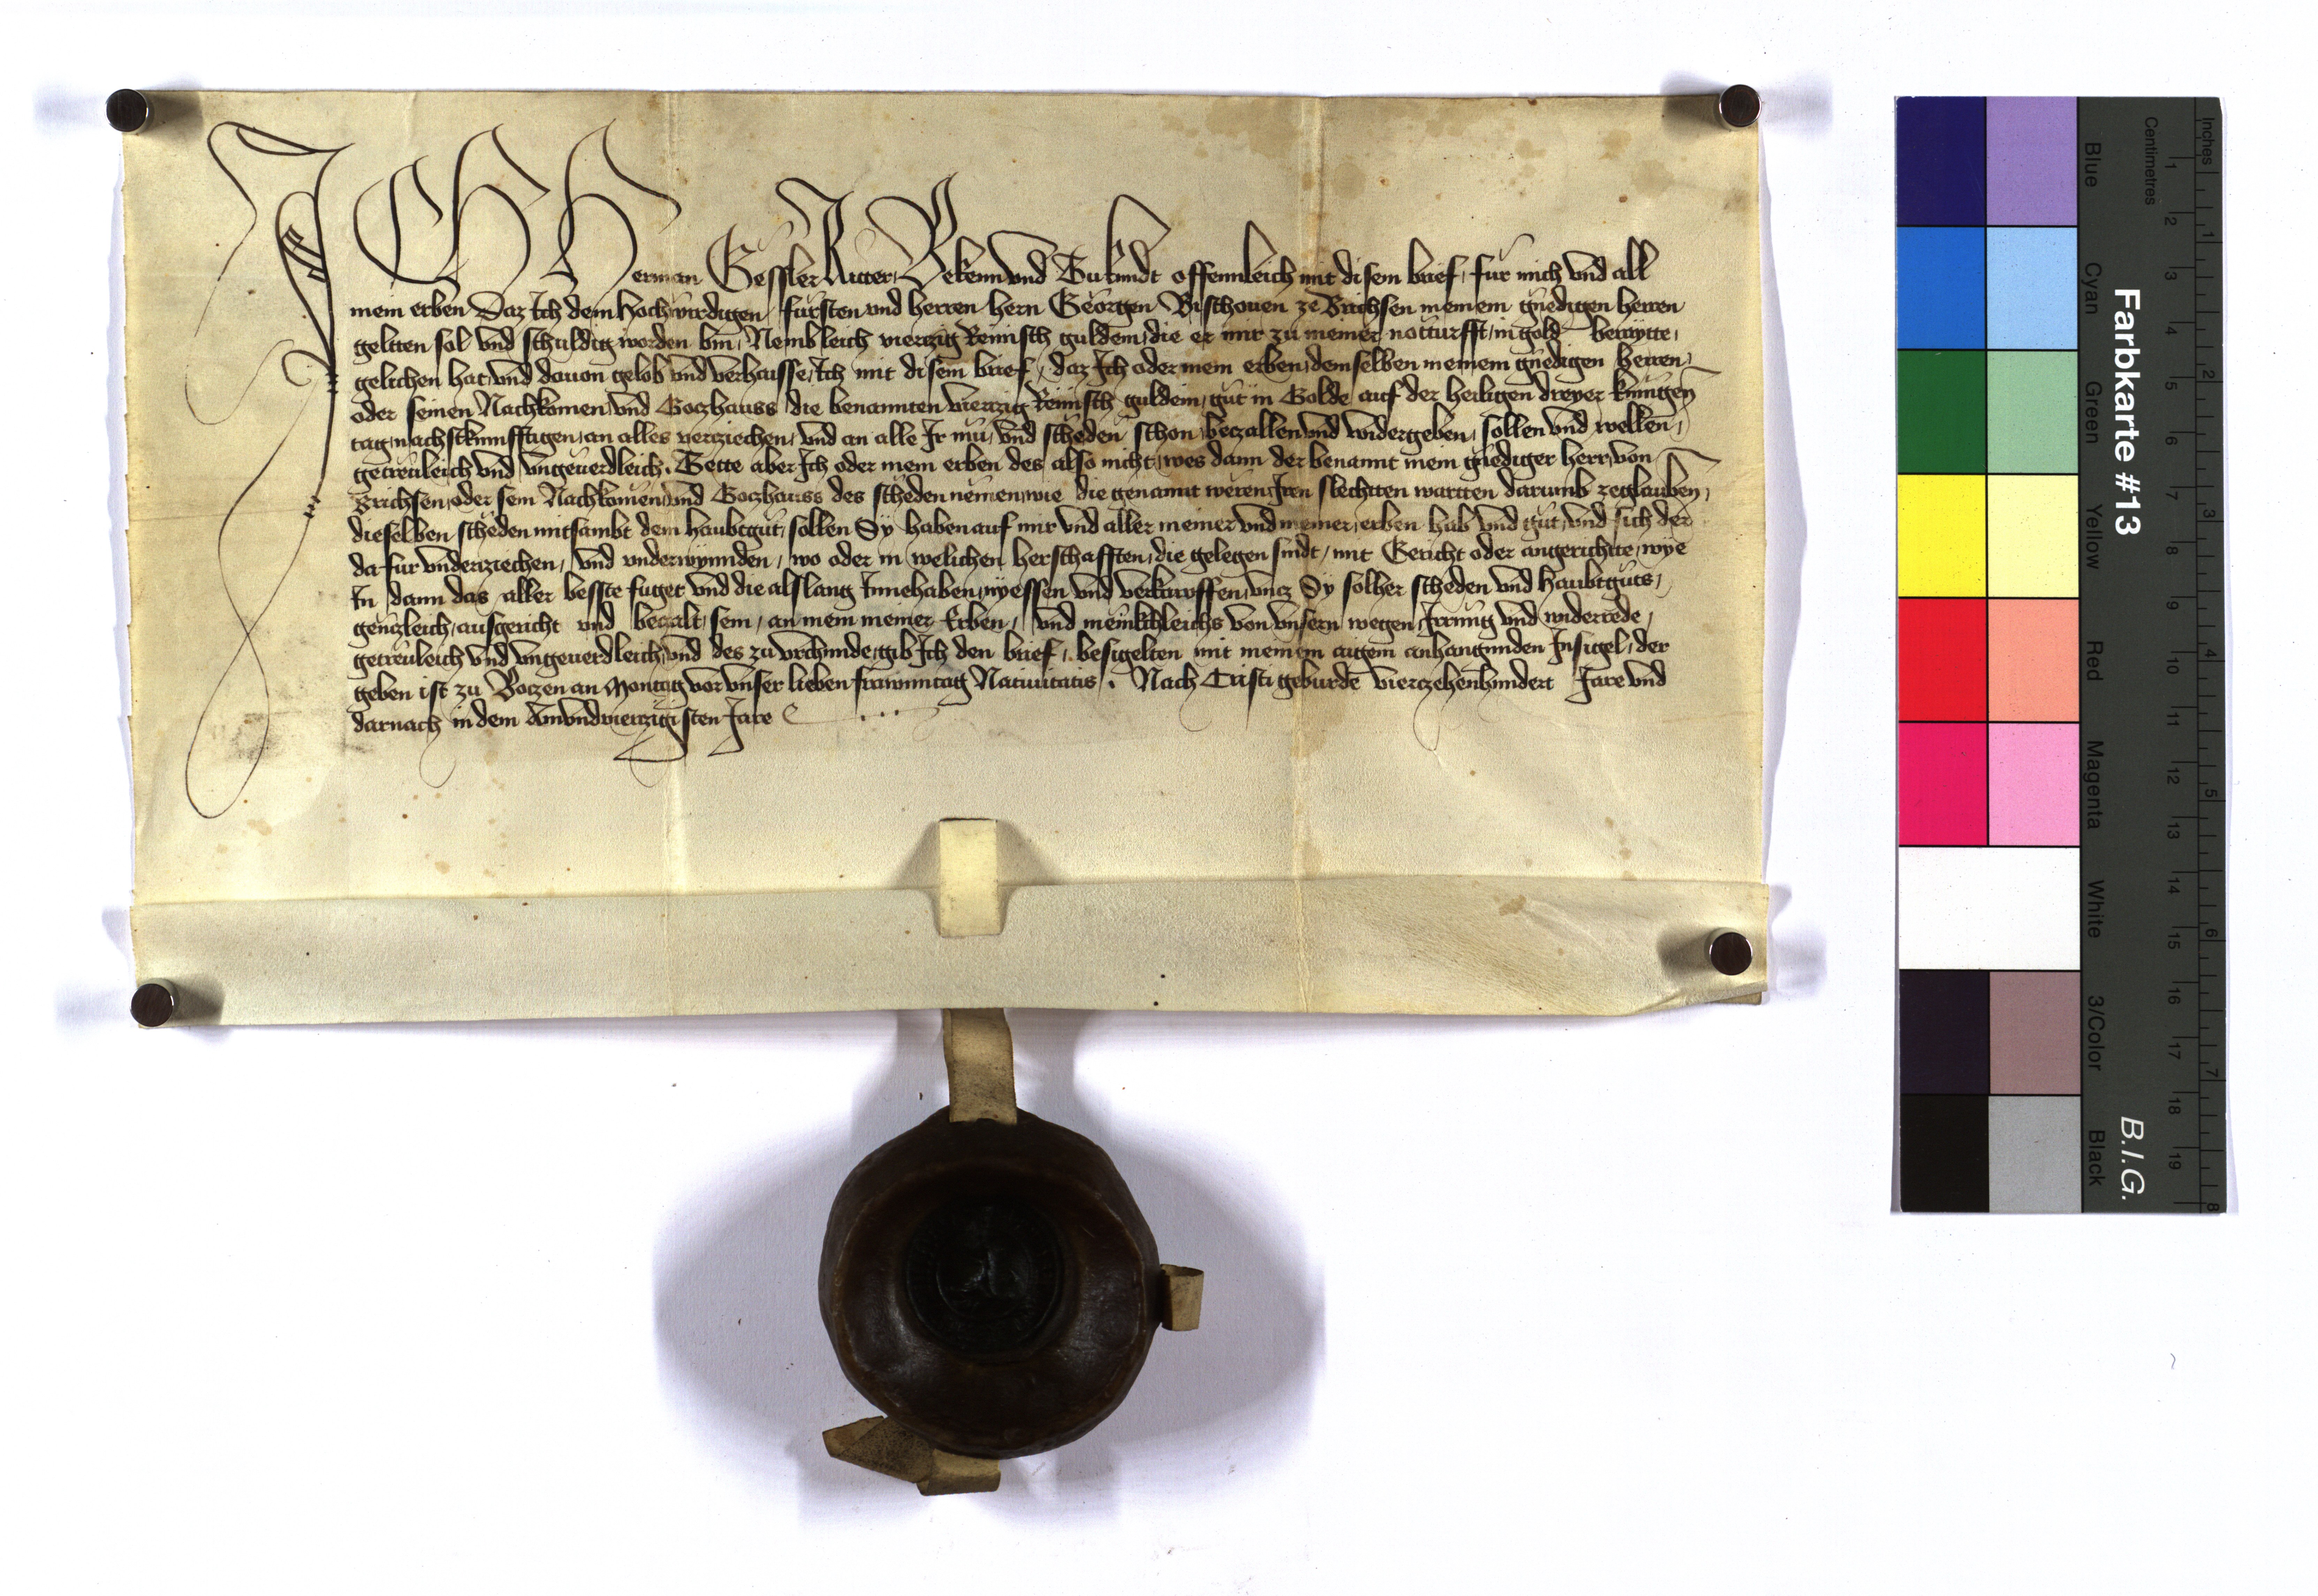 ICH Herman Gessler Ritter, Bekenn vnd Tu kundt offennleich mit disem brief, fur mich vnd all
mein erben Daz Ich dem Hochwirdigen fürsten vnd herren hern Georgen Bischouen ze Brichsen meinem gnedigen herren
geltten sol vnd schuldig worden bin, Nembleich vierczig Reinisch guldein, die er mir zu meiner notturfft, in gold berayte,
gelichen hat, vnd dauon gelob vnd verhaisse, Ich mit disem brief, daz Ich oder mein erben, demselben meinem gnedigen herren,
oder seinen Nachkomen, vnd Goczhauss die benannten vierczig Reinisch guldein, gut in Golde auf der heiligen dreyer kunigen
tag, nachstkunfftigen, an alles verziechen, vnd an alle Ir mu, vnd scheden schon, beczallen vnd widergeben, sollen vnd wellen,
getreuleich vnd vngeuerdleich. Tette aber Ich oder mein erben des also nicht, wes dann der benannt mein gnediger herr, von
Brichsen, oder sein Nachkomen, vnd Goczhauss des scheden nemen, wie die genannt weren, Iren slechtten wortten darumb zeglauben,
dieselben scheden mitsambt dem haubtgut, sollen Sy haben auf mir vnd aller meiner vnd meiner, erben hab vnd gut, vnd sich der
dafur vnderziechen, vnd vnderwynnden, wo oder in welichen herschafften, die gelegen sindt, mit Gericht oder angerichtte, wye
In dann das aller besste fuget vnd die alslang Innehaben, nyessen vnd verkauffen, vncz Sy solher scheden vnd haubtguts,
genczleich, ausgericht vnd beczalt, sein, an mein meiner Erben, vnd meniklcleichs von vnsern wegen, Irrung vnd widerrede,
getreuleich vnd vngeuerdleich, vnd des zu vrchunde, gib Ich den brief, besigelten mit meinem aigem anhangunden Insigel, der
geben ist zu Boczen an Montag vor vnser lieben frawnntag Natiuitatis. Nach Cristi geburde vierczehenhundert Jare vnd
darnach in dem Ainvndvierczigisten Jare
Farbkarte #13
B.I.G.
Inches
Centimetres
Blue Cyan Green Yellow Red Magenta White 3/Color Black
1 2 3 4 5 6 7 8 9 10 11 12 13 14 15 16 17 18 19
1 2 3 4 5 6 7 8